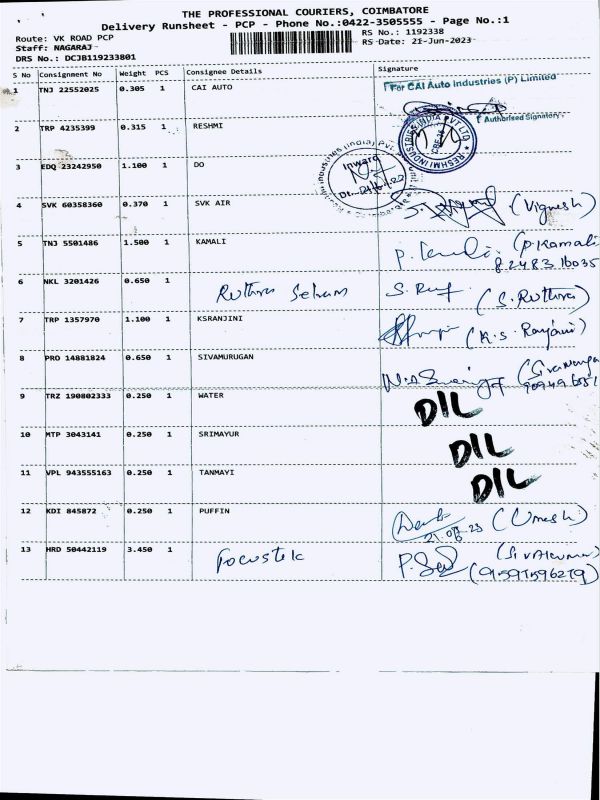 THE PROFESSIONAL COURIERS, COIMBATORE
Delivery Runsheet - PCP - Phone No.:0422-3505555 - Page No.:1
Route: VK ROAD PCP
Staff: NAGARAJ
DRS No.: DCJB119233801
RS No.: 1192338
RS Date: 21-Jun-2023
S No Consignment No Weight PCS Consignee Details Signature
1 TNJ 22552025 0.305 1 CAI AUTO
For CAI Auto Industries (P) Limited
Authorised Signatory
2 TRP 4235399 0.315 1 RESHMI
RESHMI INDUSTRIES INDIA PVT LTD
3 EDQ 23242950 1.100 1 DO
Inward
4 SVK 60358360 0.370 1 SVK AIR (Vignesh)
5 TNJ 5501486 1.500 1 KAMALI (P.Kamali
8248316035
6 NKL 3201426 0.650 1 Ruthra Selvam S. Ruf (S. Ruthra)
7 TRP 1357970 1.100 1 KSRANJINI (K.S. Ranjani)
8 PRO 14881824 0.650 1 SIVAMURUGAN
9 TRZ 190802333 0.250 1 WATER DIL
10 MTP 3043141 0.250 1 SRIMAYUR DIL
11 VPL 943555163 0.250 1 TANMAYI DIL
12 KDI 845872 0.250 1 PUFFIN (Umesh)
21.06.23
13 HRD 50442119 3.450 1 Focustek
(91597596279)